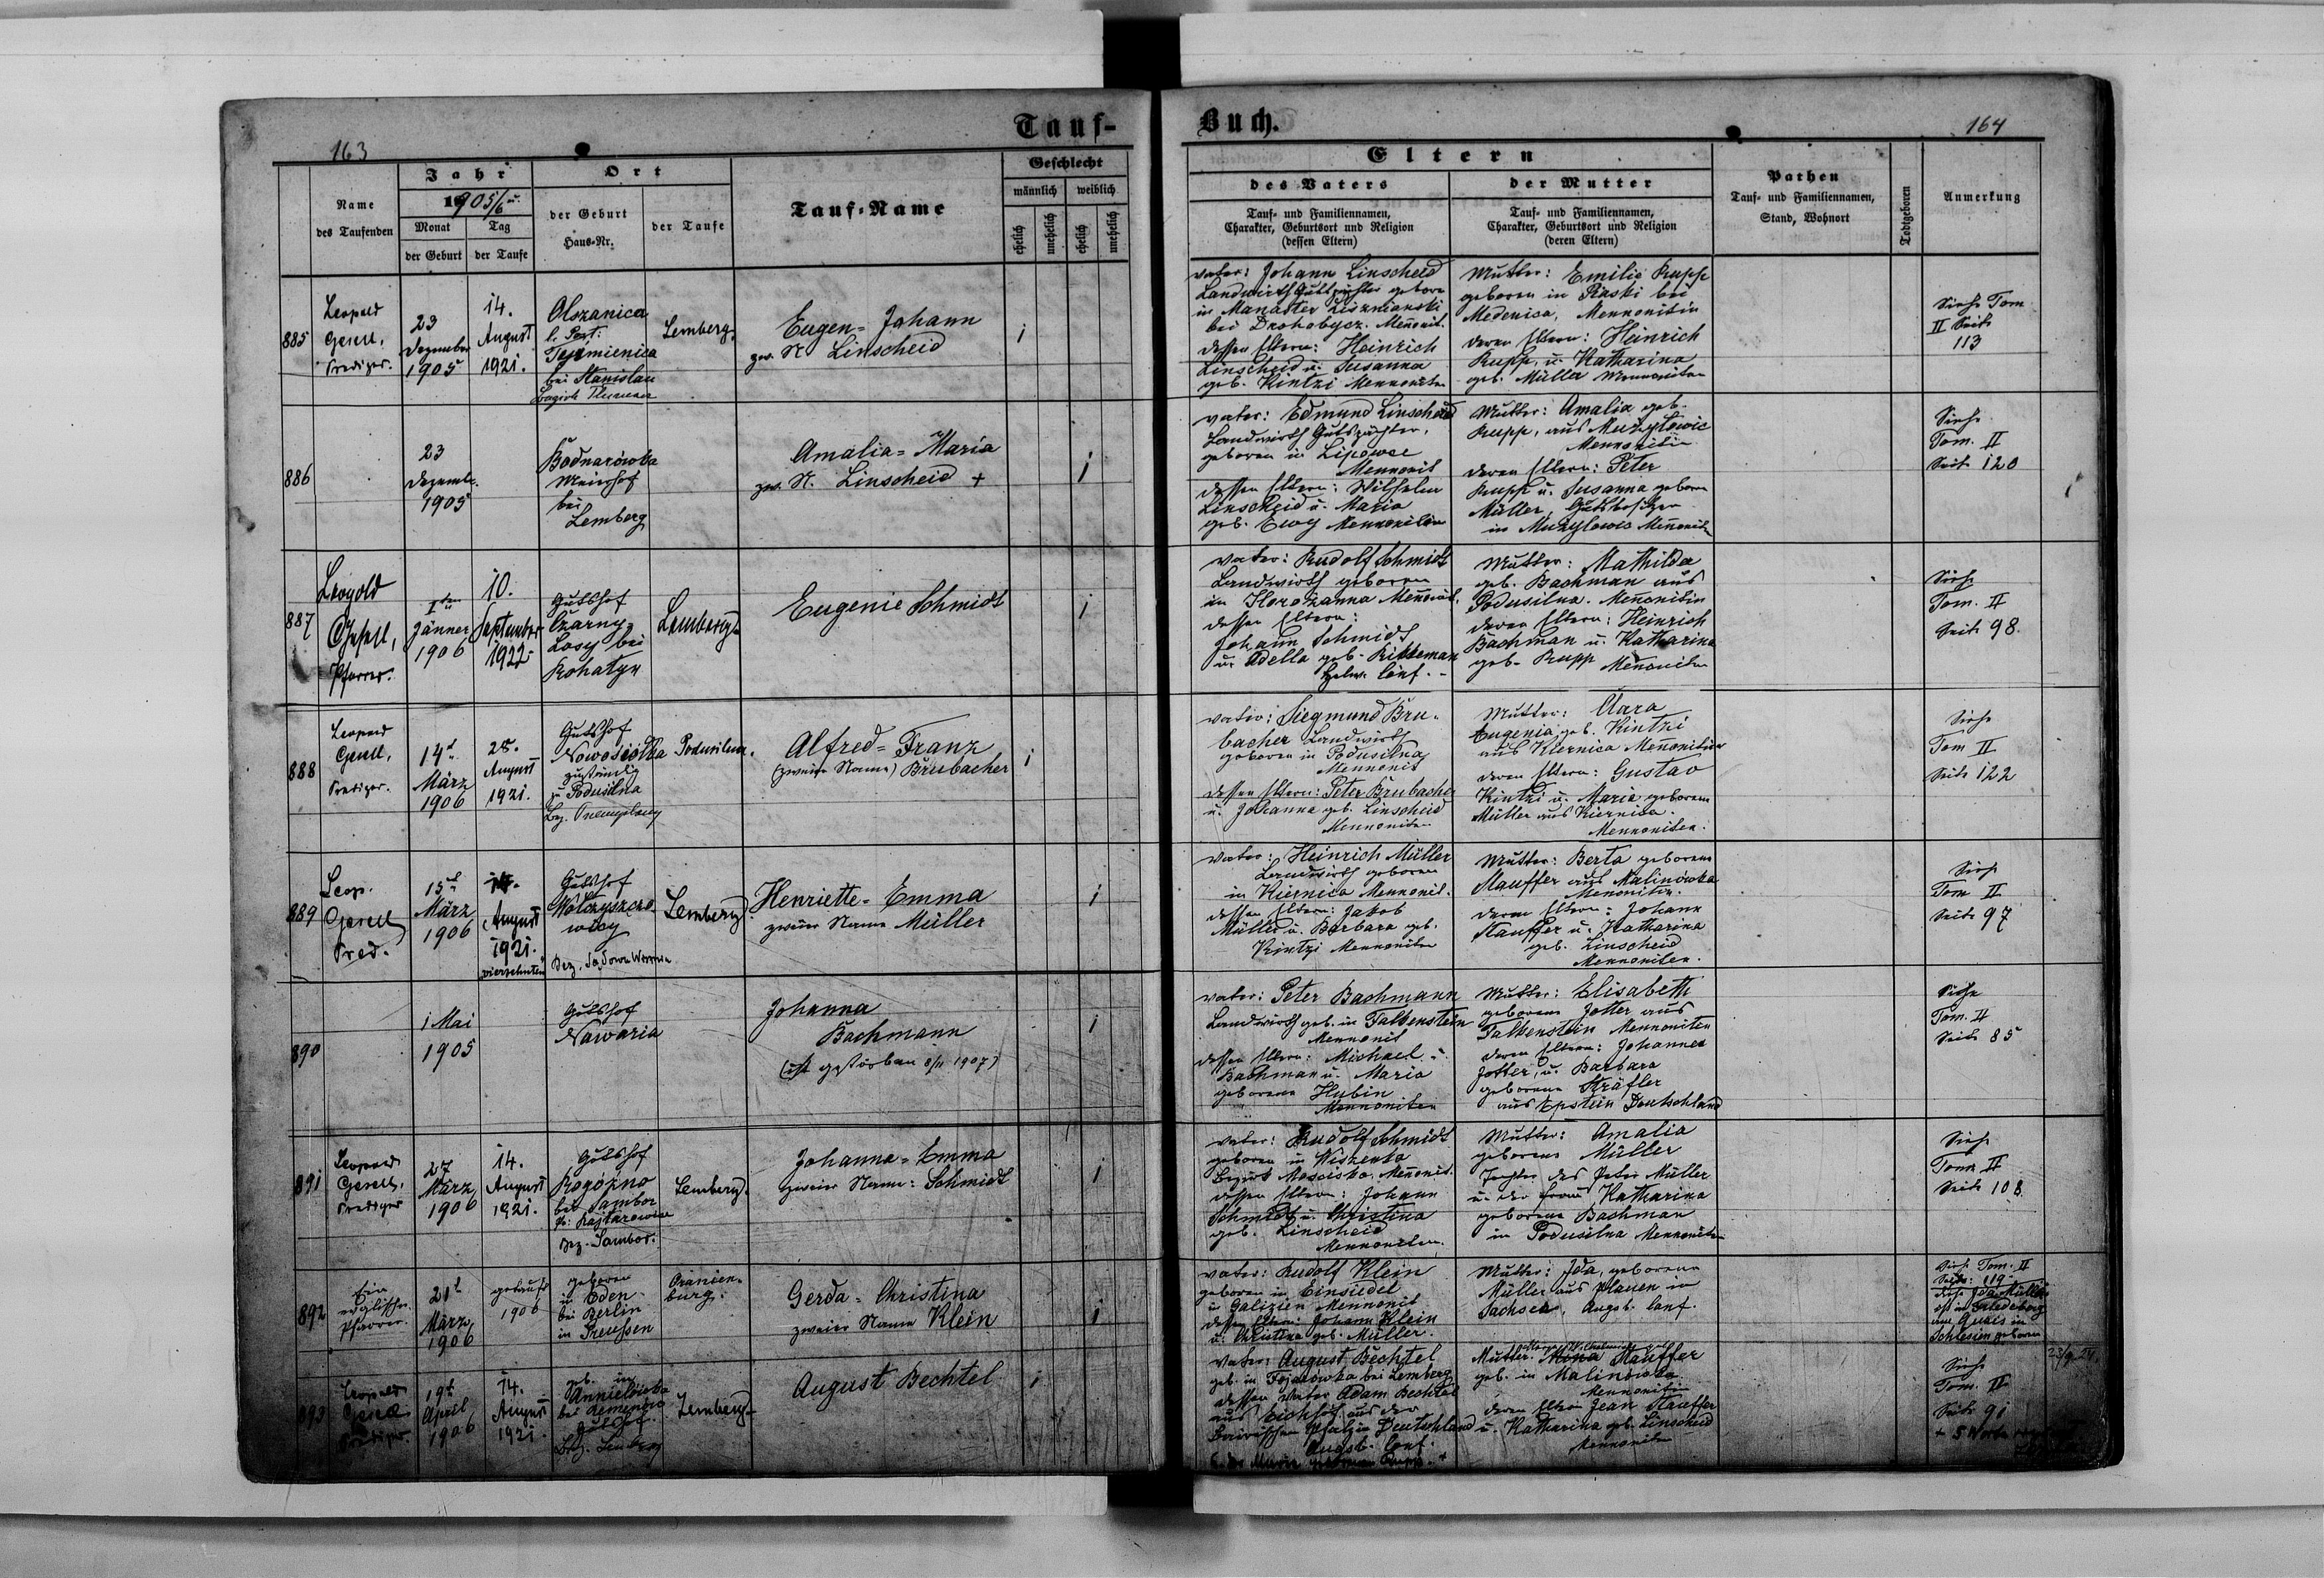 163
Tauf-
Buch.
164
Name
des Taufenden
Jahr
1905/6 u.
Monat
der Geburt
Tag
der Taufe
Ort
der Geburt
Haus-Nr.
der Taufe
Tauf-Name
Geschlecht
männlich
weiblich
ehelich
unehelich
ehelich
unehelich
Eltern
des Vaters
Tauf- und Familiennamen,
Charakter, Geburtsort und Religion
(dessen Eltern)
der Mutter
Tauf- und Familiennamen,
Charakter, Geburtsort und Religion
(deren Eltern)
Pathen
Tauf- und Familiennamen,
Stand, Wohnort
Todtgeboren
Anmerkung
885
Leopold
Gesell,
Prediger.
23
Dezember
1905
14.
August
1921.
Olszanica
l. Post:
Tysmienica
bei Stanislau
Bezirk
Lemberg.
Eugen= Johann
zw. N. Linscheid
i
Vater: Johann Linscheid
Landwirth Gutspächter geboren
in Manaster
bei Drohobycz. Menonit.
dessen Eltern: Heinrich
Linscheid u. Susanna
geb. Kintzi Mennoniten
Mutter: Emilie Rupp
geboren in Piaski bei
Medenica, Mennonitin
deren Eltern: Heinrich
Rupp, u. Katharina
geb. Müller Mennoniten
Siehe Tom
II Seite
113
886
23
Dezemb.
1905
Bodnarówka
Meierhof
bei
Lemberg
Amalia= Maria
zw. N. Linscheid +
i
Vater: Edmund Linscheid
Landwirth Gutspächter,
geboren in Lipowce
Mennonit
dessen Eltern: Wilhelm
Linscheid u. Maria
geb. Ewy Mennoniten
Mutter: Amalia geb.
Rupp, aus Mużyłowic
Mennonitin
deren Eltern: Peter
Rupp u. Susanna geboren
Müller, Gutsbesitzer
in Mużyłowic Menonit
Siehe
Tom. II
Seite 120
887
Leopold
Gesell,
Pfarrer.
I ten
Jänner
1906
10.
September
1922
Gutshof
Czarny-
Łosy bei
Rohatyn
Lemberg
Eugenie Schmidt
i
Vater: Rudolf Schmidt
Landwirth geboren
in Horożanna Menonit.
dessen Eltern:
Johann Schmidt
u. Adella geb. Ritteman
Helv. Conf. -
Mutter: Mathilda
geb. Bachman aus
Podusilna. Menonitin
deren Eltern: Heinrich
Bachman u. Katharina
geb. Rupp Menoniten
Siehe
Tom. II
Seite 98.
888
Leopold
Gesell,
Prediger.
14t
März
1906
28.
August
1921.
Gutshof
Nowosiółka
zuständig
zu Podusilna
Bez. Przemyslany
Podusilna.
Alfred= Franz
(zweiter Name) Brubacher
i
Vater: Siegmund Bru-
bacher Landwirth
geboren in Podusilna
Mennonit
dessen Eltern: Peter Brubacher
u. Johanna geb. Linscheid
Mennoniten
Mutter: Clara
Eugenia geb. Kintzi
aus Kiernica Menonitin
deren Eltern: Gustav
Kintzi u. Maria geborene
Müller aus Kiernica.
Mennoniten.
Siehe
Tom II
Seite 122
889
Leop.
Gesell
Pred.
15t
März
1906
14.
August
1921.
vierzehnten
Gutshof
Wołczyszczo-
wicy
Bez. Sadowa Wisznia
Lemberg
Henriette= Emma
zweier Name Müller
i
Vater: Heinrich Müller
Landwirth geboren
in Kiernica Mennonit.
dessen Eltern: Jakob
Müller u. Barbara geb.
Kintzi Mennoniten
Mutter: Berta geborene
Stauffer aus Malinówka
Menoniten.
deren Eltern: Johann
Stauffer u. Katharina
geb. Linscheid
Mennoniten.
Siehe
Tom II
Seite 97
890
1 Mai
1905
Gutshof
Nawaria
Johanna
Bachmann
(ist gestorben 8/11 1907)
i
Vater: Peter Bachmann
Landwirth geb. in Falkenstein
Mennonit
dessen Eltern: Michael u.
Bachman u. Maria
geborene Hubin
Mennoniten
Mutter: Elisabeth
geborene Jotter aus
Falkenstein Mennoniten
deren Eltern: Johannes
Jotter, u. Barbara
geborene Sträfler
aus Epstein Deutschland
Siehe
Tom. II
Seite 85
891
Leopold
Gesell,
Prediger
27
März
1906
14.
August
1921.
Gutshof
Rogózno
bei Sambor
Bez. Sambor.
Lemberg.
Johanna= Emma
zweier Name: Schmidt
i
Vater: Rudolf Schmidt
geboren in Wiszenka
Bezirk Mosciska, Menonit.
dessen Eltern: Johann
Schmidt u. Christina
geb. Linscheid
Mennoniten.
Mutter: Amalia
geborene Müller
Tochter des Peter Müller
u. der Frau Katharina
geborene Bachman
in Podusilna Mennoniten
Siehe
Tom II
Seite 108
892
Ein
Pfarrer.
21t
März
1906
getauft
1906
geboren
in Eden
bei Berlin
in Preussen
Oranien-
burg.
Gerda= Christina
zweier Name Klein
i
Vater: Rudolf Klein
geboren in Einsiedel
in Galizien Mennonit
dessen Eltern: Johann Klein
u. Christina geb. Müller.
Mutter: Ida, geborene
Müller aus Plauen in
Sachsen, Augsb. Conf.
Siehe Tom. II
Seite: 119
diese Ida Müller
ist in Friedeberg
am Queis in
Schlesien geboren
893
Leopold
Gesell
Prediger.
19t
April
1906
14.
August
1921.
geb. in
Annielówka
bei Remenów
Gutshof.
Bez. Lemberg
Lemberg
August Bechtel
i
Vater: August Bechtel
geb. in Fojarówka bei Lemberg
dessen Vater Adam Bechtel
aus Eichhof aus der
Bairischen Pfalz in Deutschland
Augsb. Conf.
Mutter: Stauffer
geb. in Malinówka
Mennonitin
deren Eltern Jean Stauffer
u. Katharina geb. Linscheid
Mennoniten
Siehe
Tom. II
Seite 91
+ 5 Worte